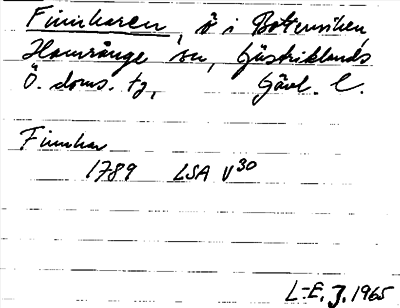 Finnharen, ö i Bottenviken,
Hamrånge sn, Gästriklands
Ö. doms. tg, Gävl. l.
Finnhar
1789 LSA V30
L-E. J. 1965